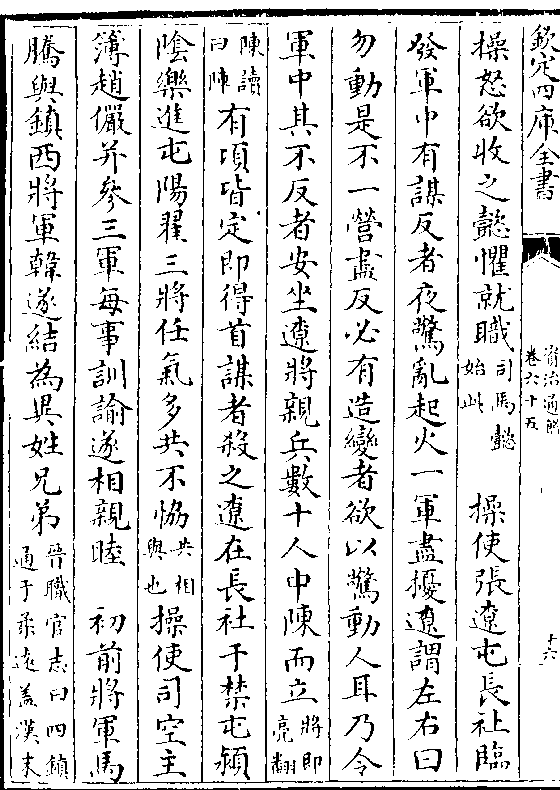 欽定四庫全書
資治通鑑
卷六十五
十六
操怒欲收之懿懼就職司馬懿始此　操使張遼屯長社臨
發軍中有謀反者夜驚亂起火一軍盡擾遼謂左右曰
勿動是不一營盡反必有造變者欲以驚動人耳乃令
軍中其不反者安坐遼將親兵數十人中陳而立將即亮翻
陳讀曰陣有頃皆定即得首謀者殺之遼在長社于禁屯潁
陰樂進屯陽翟三將任氣多共不協共相與也操使司空主
簿趙儼并參三軍每事訓諭遂相親睦　初前將軍馬
騰與鎮西將軍韓遂結為異姓兄弟晉職官志曰四鎮通于柔遠蓋漢末